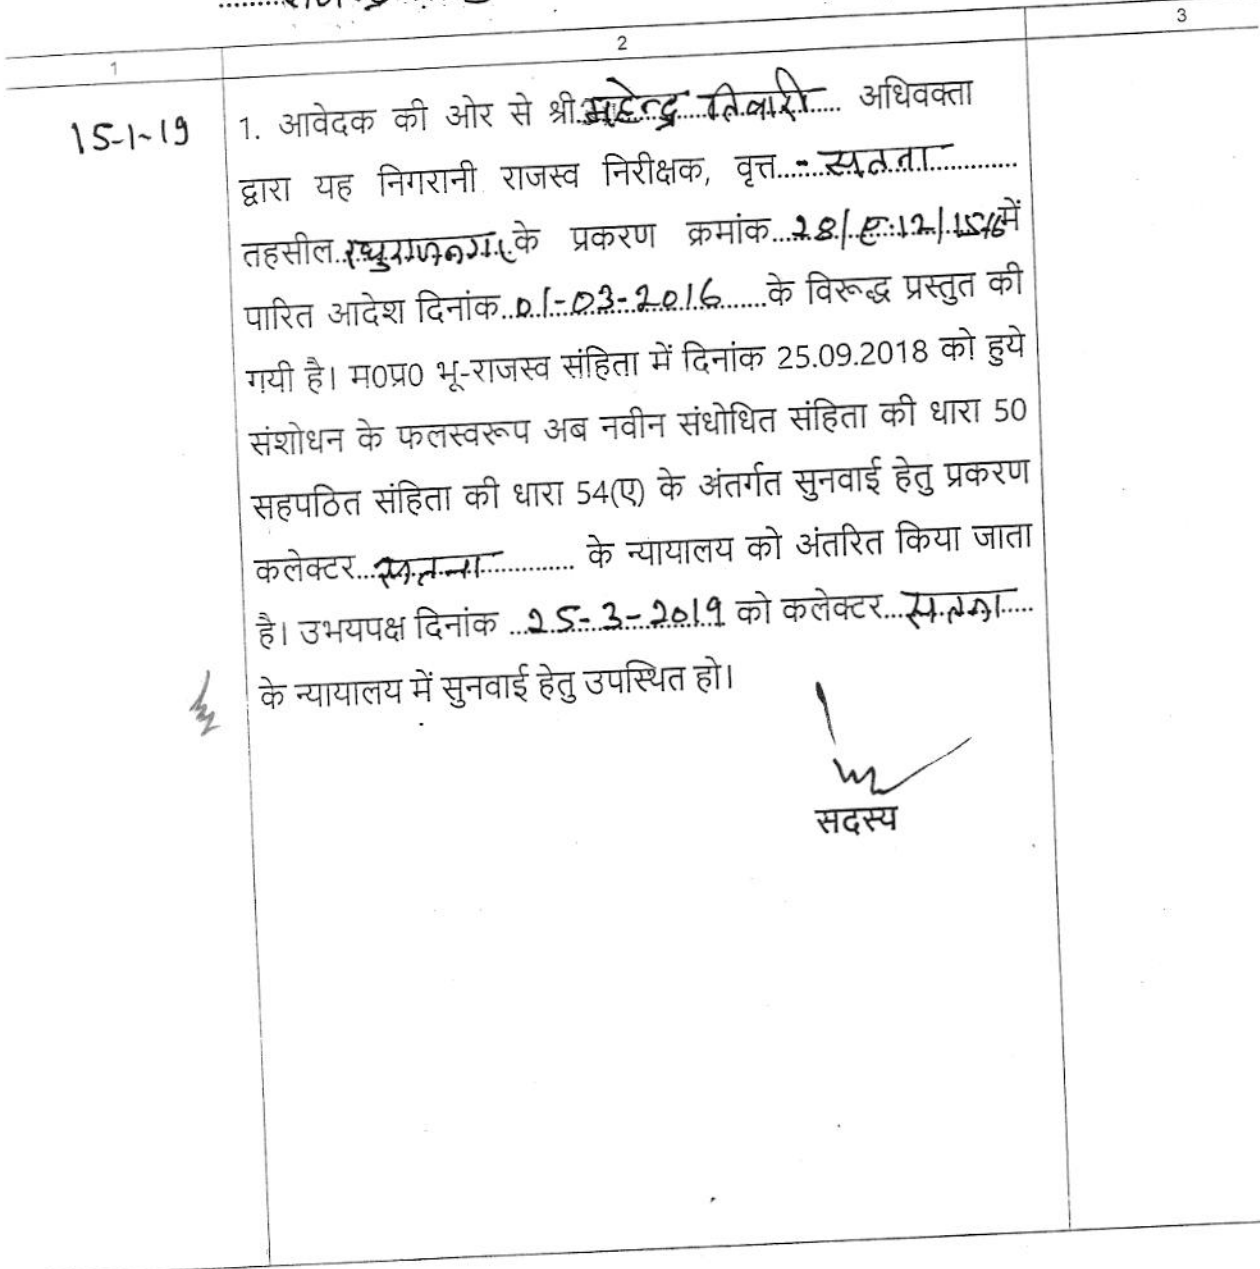 1 2 3
15-1-19
1. आवेदक की ओर से श्री महेन्द्र तिवारी अधिवक्ता
द्वारा यह निगरानी राजस्व निरीक्षक, वृत्त - सतना
तहसील रघुराजनगर के प्रकरण क्रमांक 28/ए-12/15-16 में
पारित आदेश दिनांक 01-03-2016 के विरूद्ध प्रस्तुत की
गयी है। म0प्र0 भू-राजस्व संहिता में दिनांक 25.09.2018 को हुये
संशोधन के फलस्वरूप अब नवीन संधोधित संहिता की धारा 50
सहपठित संहिता की धारा 54(ए) के अंतर्गत सुनवाई हेतु प्रकरण
कलेक्टर सतना के न्यायालय को अंतरित किया जाता
है। उभयपक्ष दिनांक 25-3-2019 को कलेक्टर सतना
के न्यायालय में सुनवाई हेतु उपस्थित हो।
सदस्य